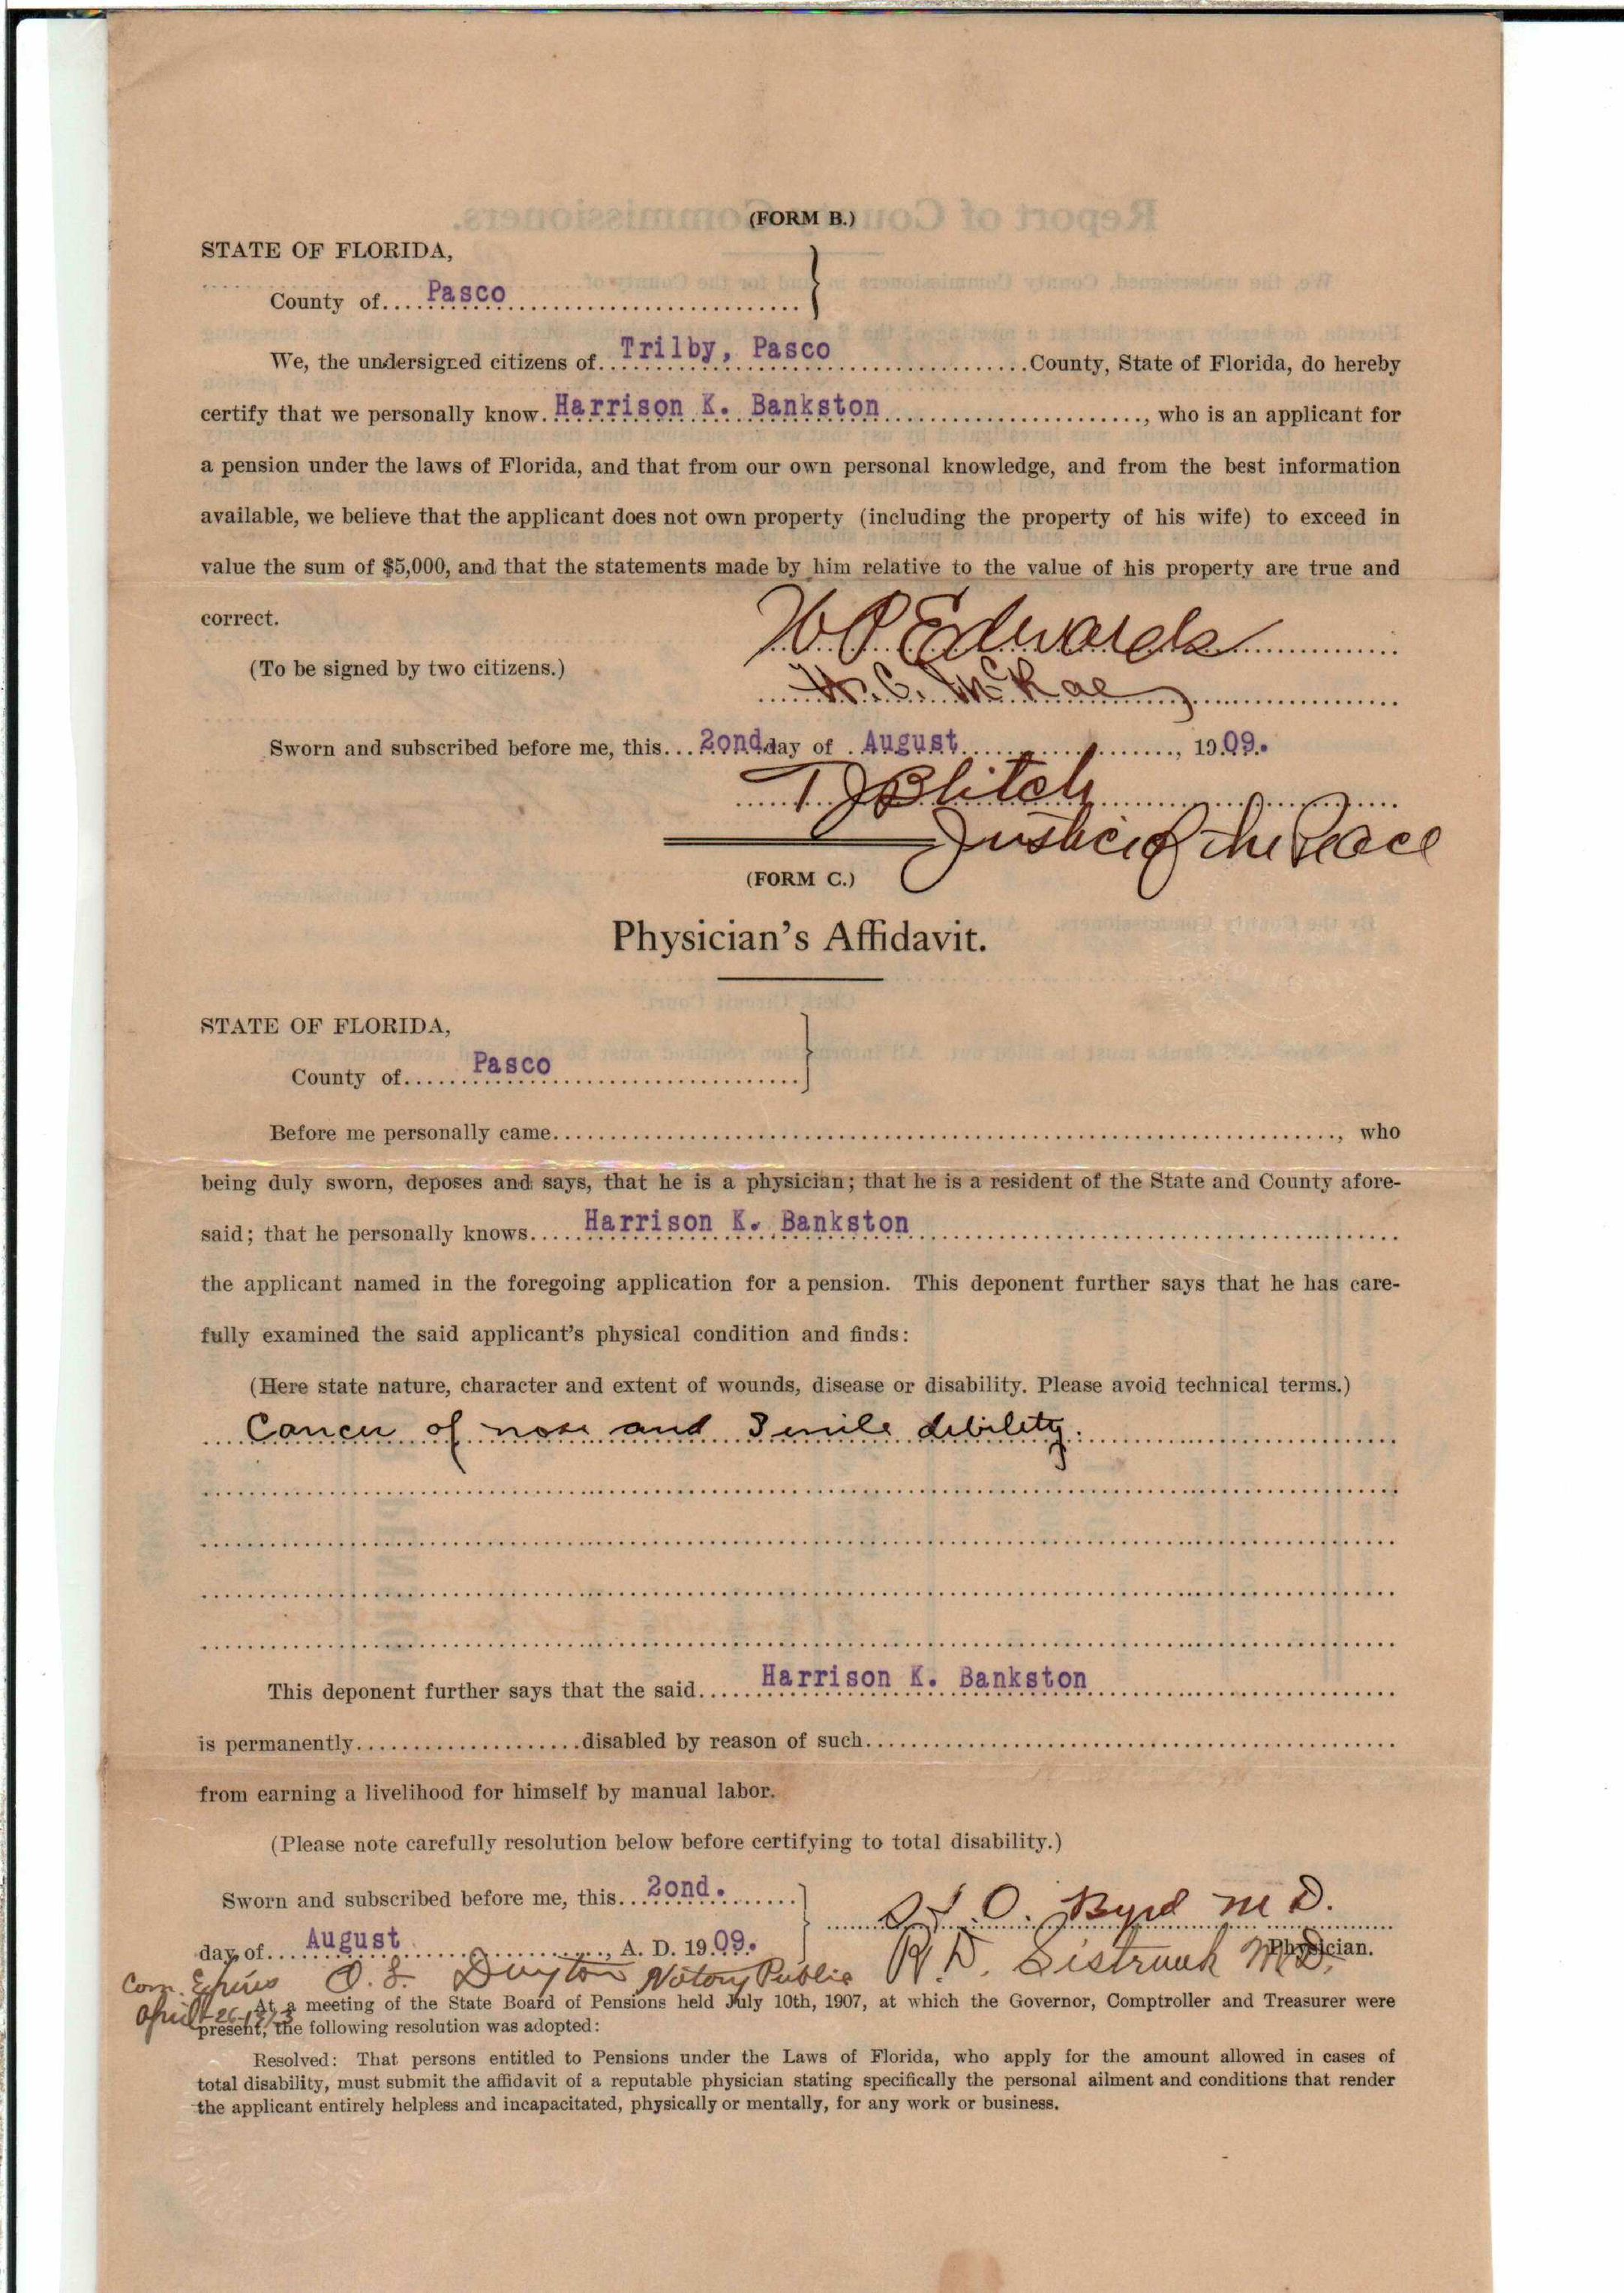 (FORM B.)
STATE OF FLORIDA,
County of....Pasco
We, the undersigned citizens of..Trilby, Pasco...County, State of Florida, do hereby
certify that we personally know.Harrison K. Bankston..., who is an applicant for
a pension under the laws of Florida, and that from our own personal knowledge, and from the best information
available, we believe that the applicant does not own property (including the property of his wife) to exceed in
value the sum of $5,000, and that the statements made by him relative to the value of his property are true and
correct.
W P Edwards
(To be signed by two citizens.)
H. C. McRae
Sworn and subscribed before me, this...2ond day of August..., 1909.
T J Blitch
Justice of the Peace
(FORM C.)
Physician's Affidavit.
STATE OF FLORIDA,
County of......Pasco
Before me personally came..., who
being duly sworn, deposes and says, that he is a physician; that he is a resident of the State and County afore-
said; that he personally knows....Harrison K. Bankston
the applicant named in the foregoing application for a pension. This deponent further says that he has care-
fully examined the said applicant's physical condition and finds:
(Here state nature, character and extent of wounds, disease or disability. Please avoid technical terms.)
Cancer of nose and Senile debility.
This deponent further says that the said.....Harrison K. Bankston
is permanently....................disabled by reason of such
from earning a livelihood for himself by manual labor.
(Please note carefully resolution below before certifying to total disability.)
Sworn and subscribed before me, this..2ond.
O. Byrd M D.
day of....August..., A. D. 1909.
Physician.
R. D. Sistrunk M.D.
Com. Expires O. L. Dayton Notary Public
April 26-1913
At a meeting of the State Board of Pensions held July 10th, 1907, at which the Governor, Comptroller and Treasurer were
present, the following resolution was adopted:
Resolved: That persons entitled to Pensions under the Laws of Florida, who apply for the amount allowed in cases of
total disability, must submit the affidavit of a reputable physician stating specifically the personal ailment and conditions that render
the applicant entirely helpless and incapacitated, physically or mentally, for any work or business.